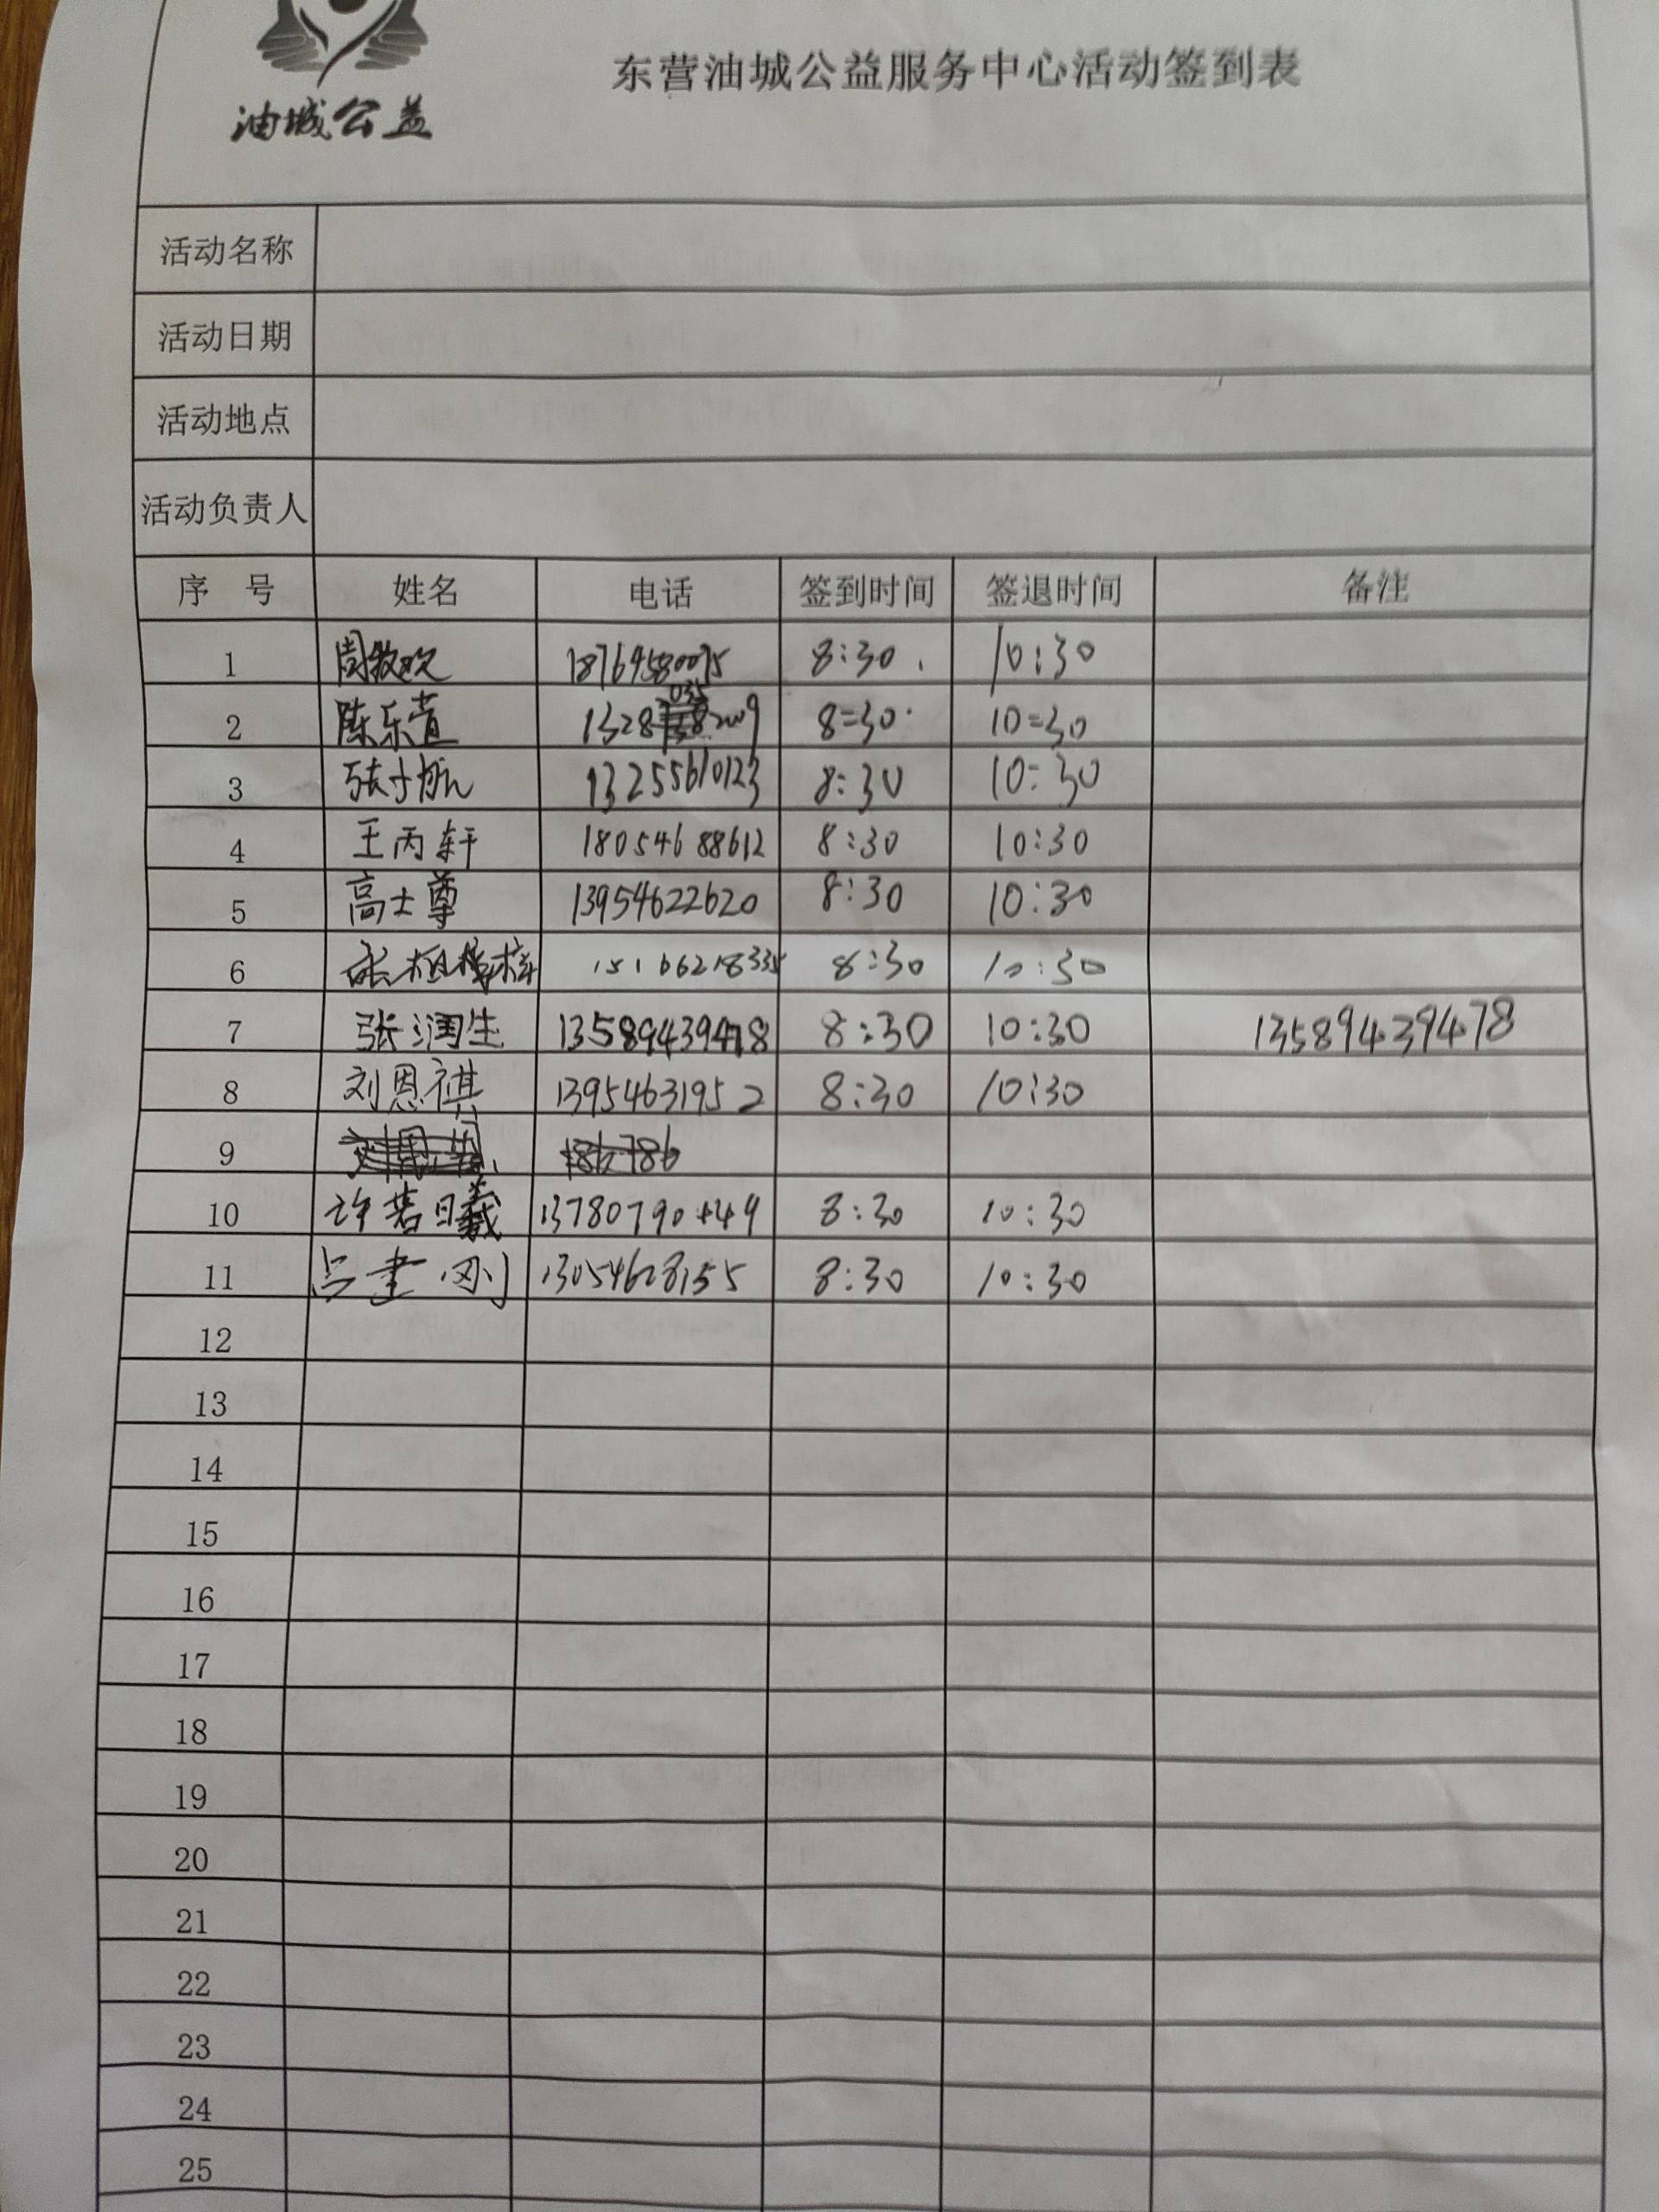 油城公益
东营油城公益服务中心活动签到表
活动名称
活动日期
活动地点
活动负责人
序 号 姓名 电话 签到时间 签退时间 备注
1 周牧欢 18769580075 8:30 10:30
2 陈乐萱 8=30 10=30
3 13255610123 8:30 10:30
4 王丙轩 18054688612 8:30 10:30
5 高士尊 13954622620 8:30 10:30
6 15166218335 8:30 10:30
7 张润生 13589439478 8:30 10:30 13589439478
8 刘恩祺 13954631952 8:30 10:30
9
10 许若曦 8:30 10:30
11 13054628155 8:30 10:30
12
13
14
15
16
17
18
19
20
21
22
23
24
25